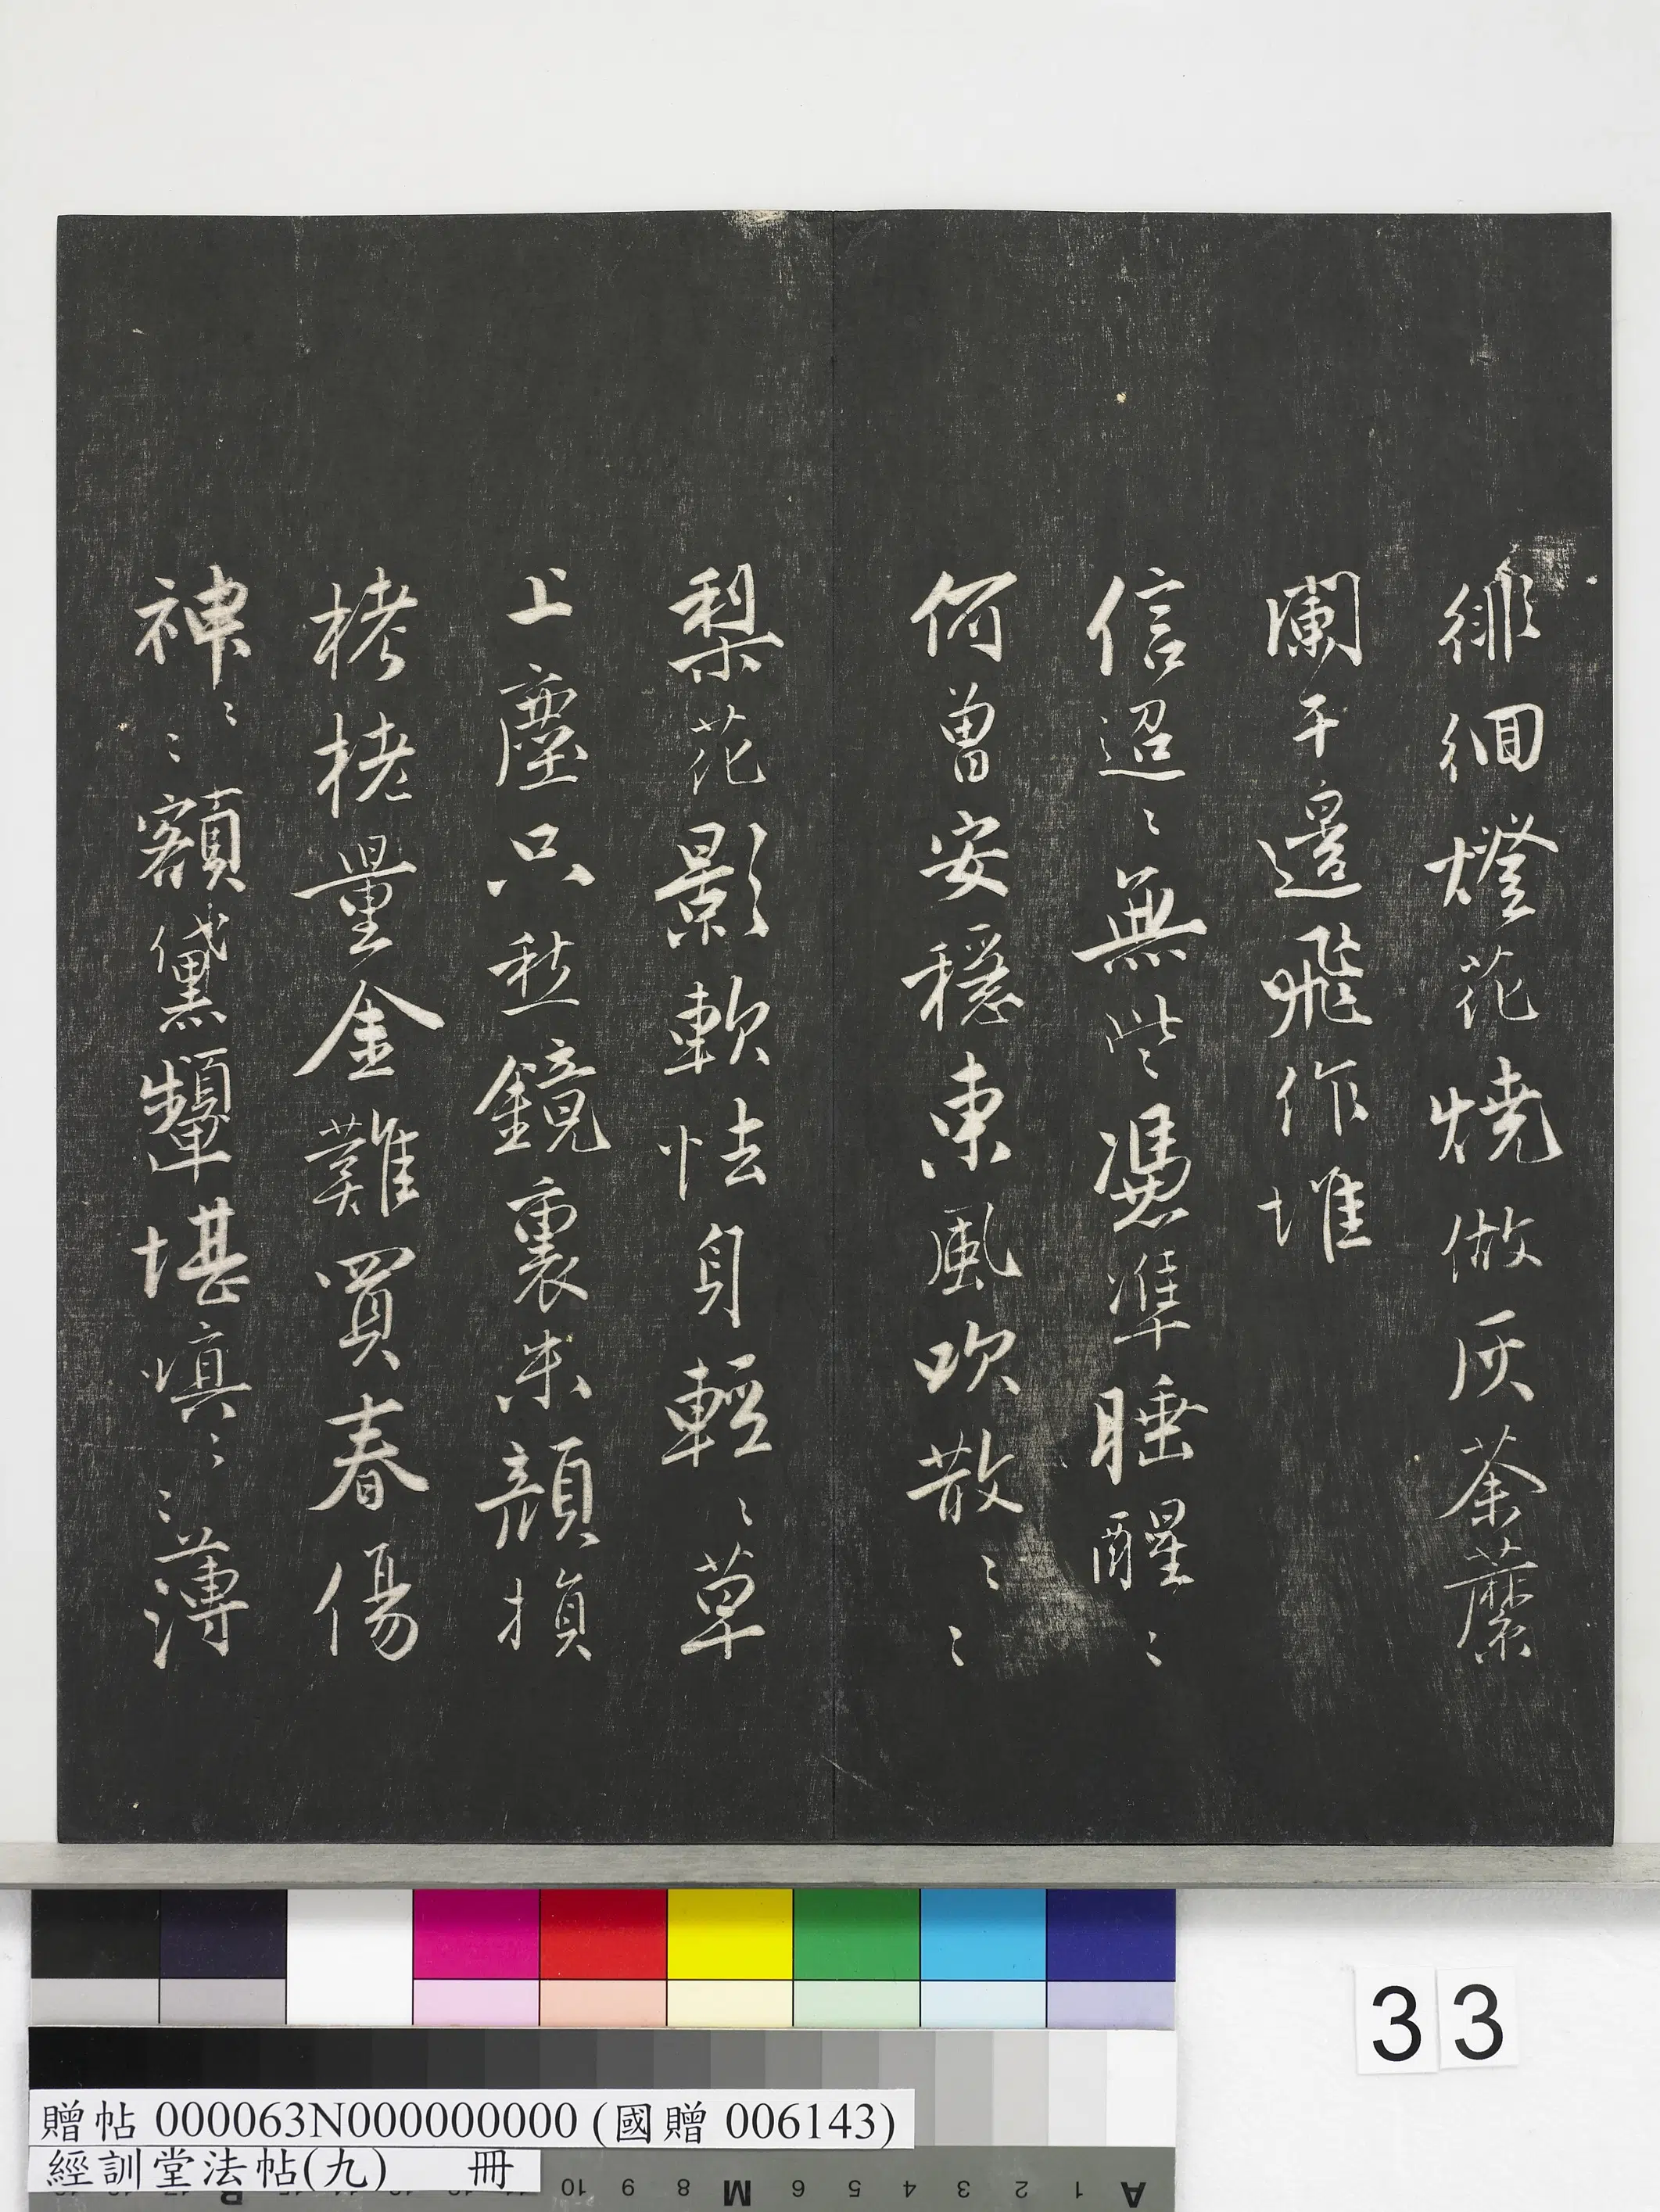 徘徊燈花燒做灰荼蘼
闌干邊飛作堆
信迢〻無些憑準睡醒〻
何曾安穩東風吹散〻〻
梨花影軟怯身輕〻草
上塵只愁鏡裏朱顏損
栲栳量金難買春傷
神〻〻額黛顰堪慎〻〻薄
33
贈帖 000063N000000000 (國贈 006143)
經訓堂法帖(九) 冊
A 1 2 3 4 5 6 M 8 9 10